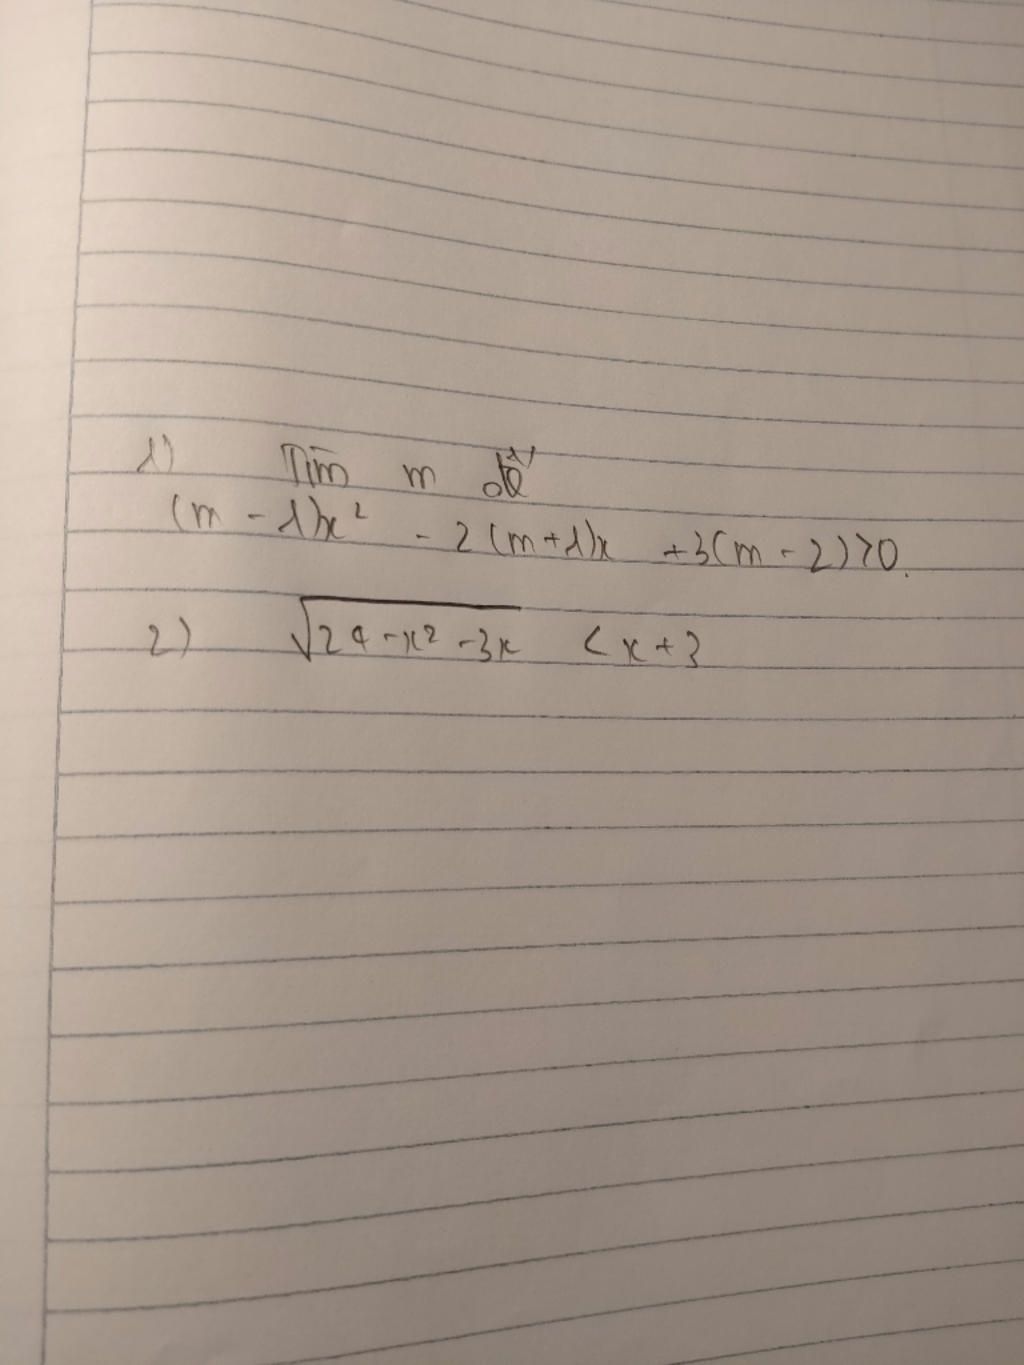 1) Tìm m để
(m - 1)x² - 2(m+1)x +3(m - 2)>0.
2) √24 -x² -3x < x+3